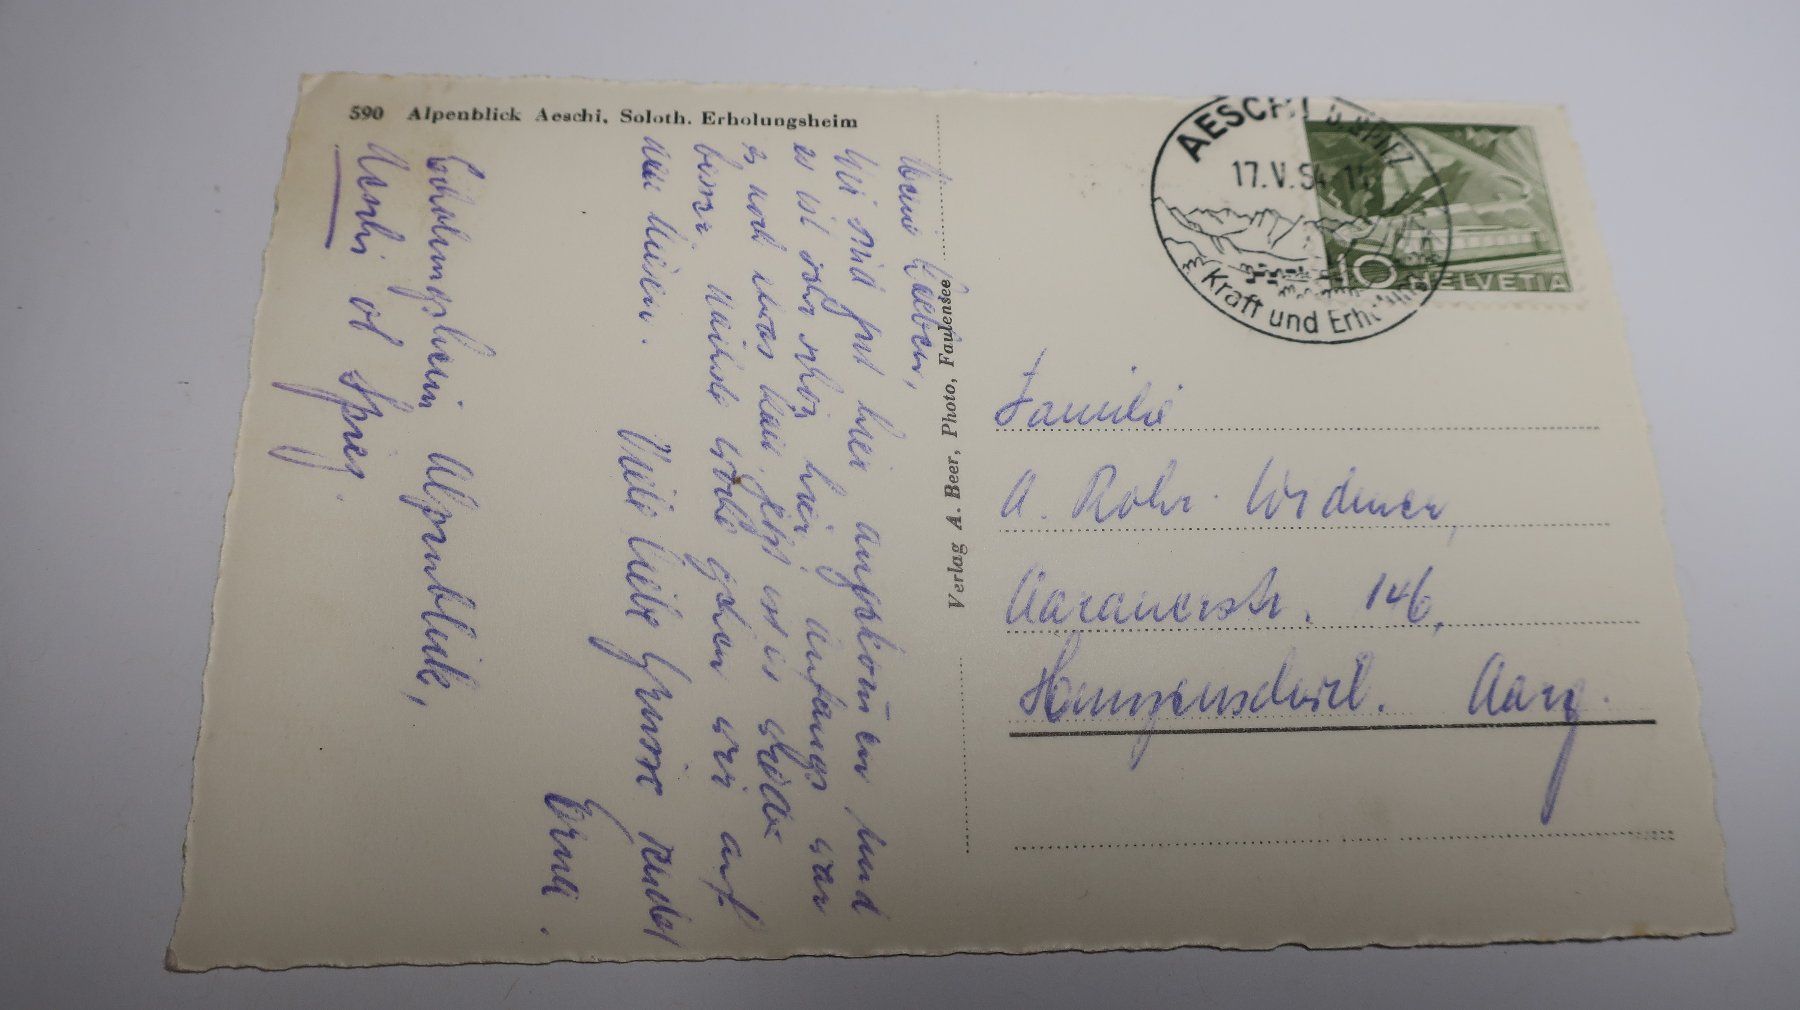 590 Alpenblick Aeschi, Soloth. Erholungsheim
Meine Lieben,
Wir sind gut hier angekom̄en und
es ist sehr schön hier. Anfangs war
es noch etwas kalt. Jetzt ist es wieder
besser. Nächste Woche gehen wir auf
den Niesen. Viele liebe Grüsse sendet
Erholungsheim Alpenblick,
Aeschi ob Spiez.
Verlag A. Beer, Photo, Faulensee
AESCHI b. SPIEZ
17.V.54
Kraft und Erh
10 HELVETIA
Familie
A. Rohr-Widmer,
Aarauerstr. 146,
Hunzenschwil. Aarg.